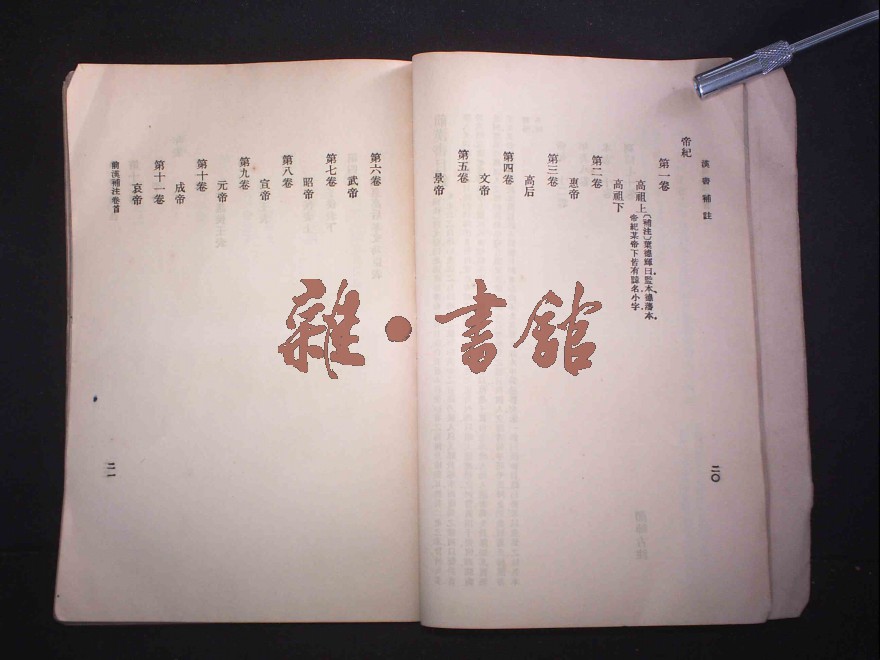 漢書補註
帝紀
第一卷
高祖上〔補注〕葉德輝曰監本德藩本
帝紀某帝下皆有諱名小字
高祖下
第二卷
惠帝
第三卷
高后
第四卷
文帝
第五卷
景帝
二〇
第六卷
武帝
第七卷
昭帝
第八卷
宣帝
第九卷
元帝
第十卷
成帝
第十一卷
哀帝
前漢補注卷首
二一
雜·書館